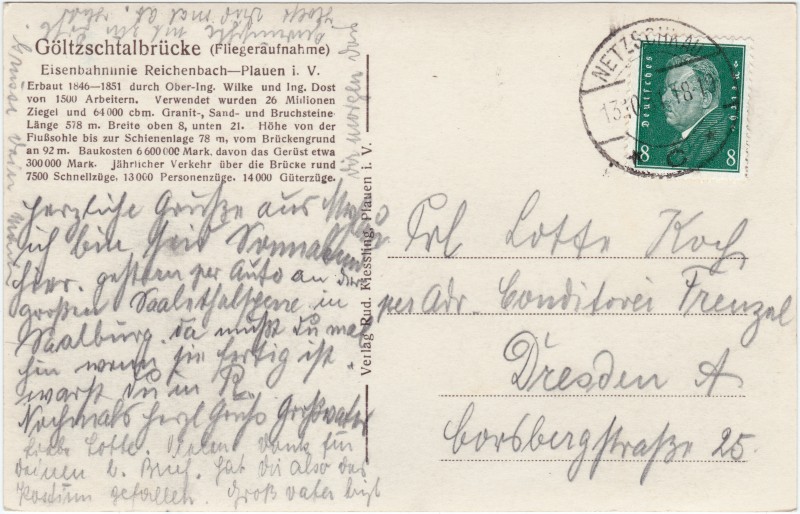 Göltzschtalbrücke (Fliegeraufnahme)
Eisenbahnlinie Reichenbach—Plauen i. V.
Erbaut 1846—1851 durch Ober-Ing. Wilke und Ing. Dost
von 1500 Arbeitern. Verwendet wurden 26 Millionen
Ziegel und 64000 cbm. Granit-, Sand- und Bruchsteine
Länge 578 m. Breite oben 8, unten 21. Höhe von der
Flußsohle bis zur Schienenlage 78 m, vom Brückengrund
an 92 m. Baukosten 6600000 Mark, davon das Gerüst etwa
300000 Mark. Jährlicher Verkehr über die Brücke rund
7500 Schnellzüge. 13000 Personenzüge. 14000 Güterzüge.
Herzliche Grüße aus
ich bin seid Sonnabend
hier. gestern per Auto an der
großen Saalethalsperre in
Saalburg. da mußt Du mal
hin wenn sie fertig ist.
warst Du in R.
Nochmals herzl Gruß Großvater
Liebe Lotte. Vielen Dank für
deinen l. Brief. hat dir also das
Kostüm gefallen. Großvater
Verlag Rud. Kiessling, Plauen i. V.
NETZSCHKAU
13.10
18-19
Deutsches Reich
8 8
Frl Lotte Koch
per Adr. Conditorei Frenzel
Dresden A
Borsbergstraße 25.